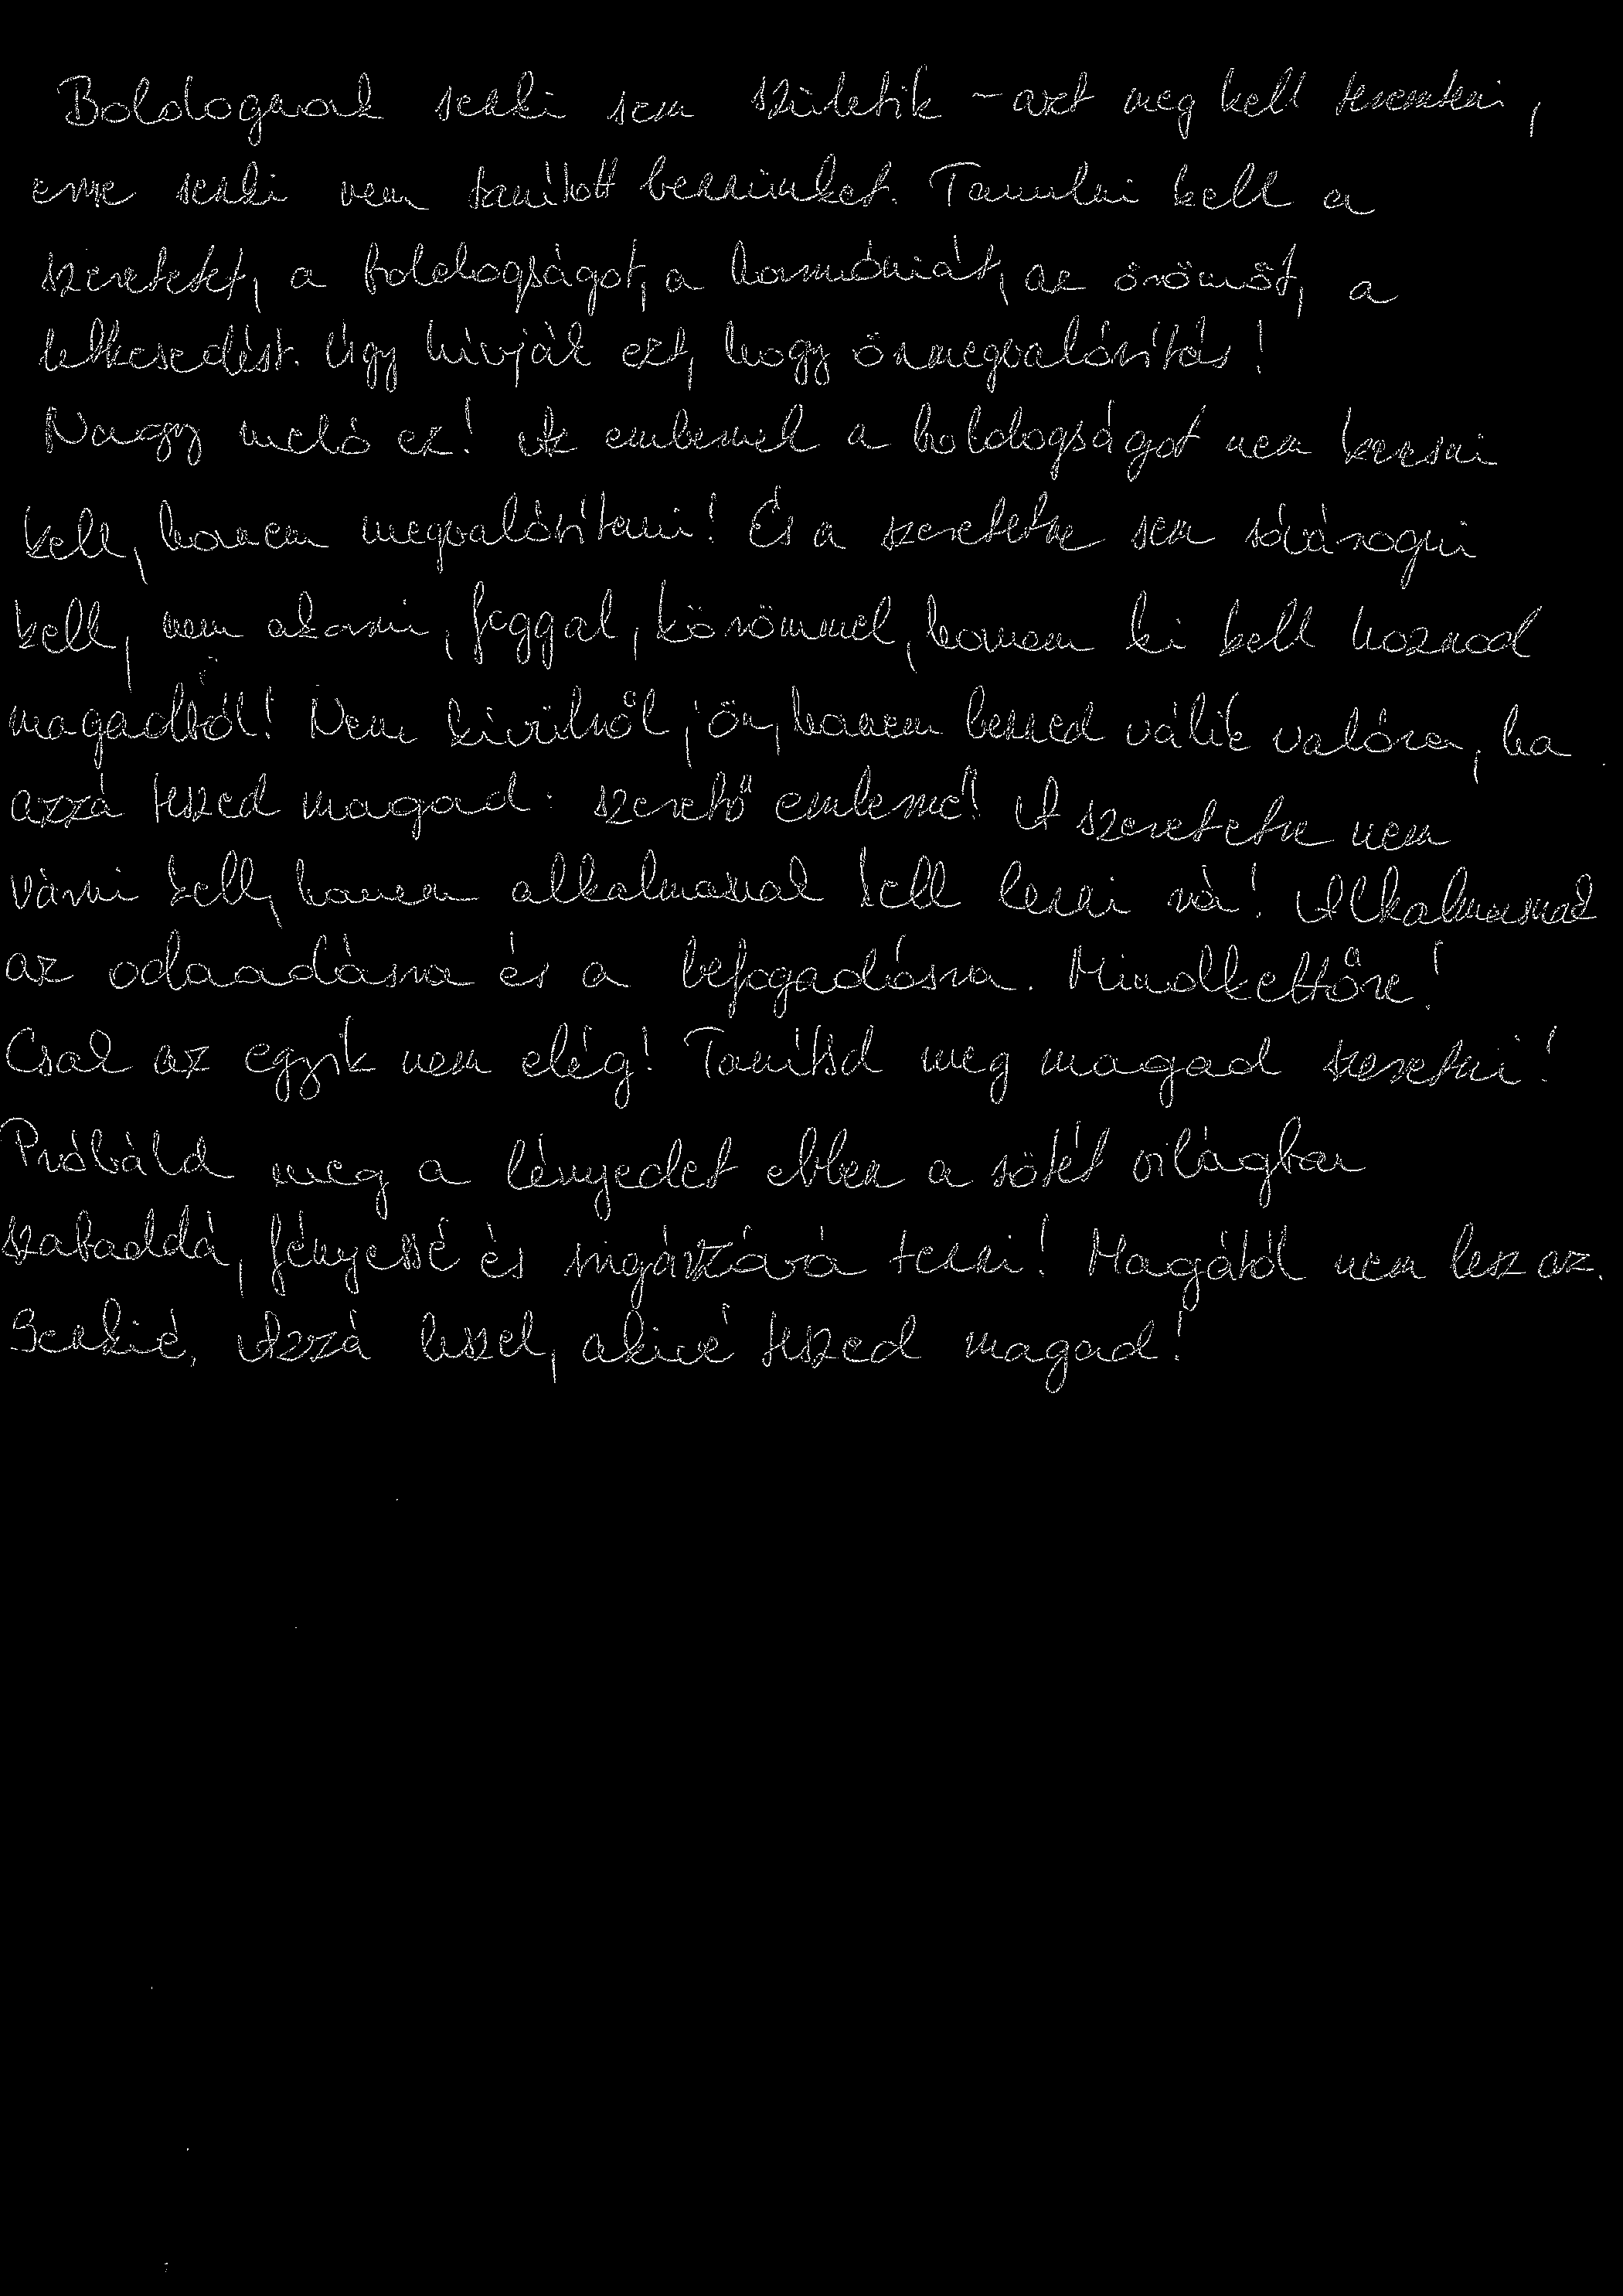 Boldognak senki sem születik – azt meg kell teremteni,
erre senki nem tanított bennünket. Tanulni kell a
szeretetet, a boldogságot, a harmóniát, az örömöt, a
lelkesedést. Úgy hívják ezt, hogy önmegvalósítás!
Nagy meló ez! Az embernek a boldogságot nem keresni
kell, hanem megvalósítani! És a szeretetre sem sóvárogni
kell, nem akarni, foggal, körömmel, hanem ki kell hoznod
magadból! Nem kívülről jön, hanem benned válik valóra, ha
azzá teszed magad: szerető emberré! A szeretetre nem
várni kell, hanem alkalmasnak kell lenni rá! Alkalmasnak
az odaadásra és a befogadásra. Mindkettőre!
Csak az egyik nem elég! Tanítsd meg magad szeretni!
Próbáld meg a lényedet ebben a sötét világban
szabaddá, fényessé és sugárzóvá tenni! Magától nem lesz az.
Senkié. Azzá leszel, akivé teszed magad!